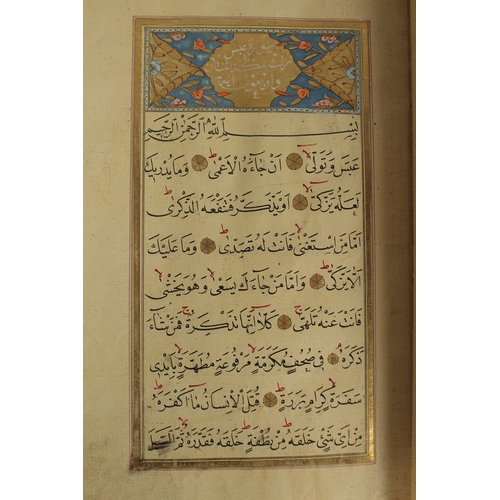 سورة عبس
بسم الله الرحمن الرحيم
عَبَسَ وَتَوَلّٰى اَنْ جَاءَهُ الْاَعْمٰى وَمَا يُدْرِيكَ
لَعَلَّهُ يَزَّكّٰى اَوْ يَذَّكَّرُ فَتَنْفَعَهُ الذِّكْرٰى
اَمَّا مَنِ اسْتَغْنٰى فَاَنْتَ لَهُ تَصَدّٰى وَمَا عَلَيْكَ
اَلَّا يَزَّكّٰى وَاَمَّا مَنْ جَاءَكَ يَسْعٰى وَهُوَ يَخْشٰى
فَاَنْتَ عَنْهُ تَلَهّٰى كَلَّا اِنَّهَا تَذْكِرَةٌ فَمَنْ شَاءَ
ذَكَرَهُ فِي صُحُفٍ مُكَرَّمَةٍ مَرْفُوعَةٍ مُطَهَّرَةٍ بِاَيْدِي
سَفَرَةٍ كِرَامٍ بَرَرَةٍ قُتِلَ الْاِنْسَانُ مَا اَكْفَرَهُ
مِنْ اَيِّ شَيْءٍ خَلَقَهُ مِنْ نُطْفَةٍ خَلَقَهُ فَقَدَّرَهُ ثُمَّ السَّبِيلَ